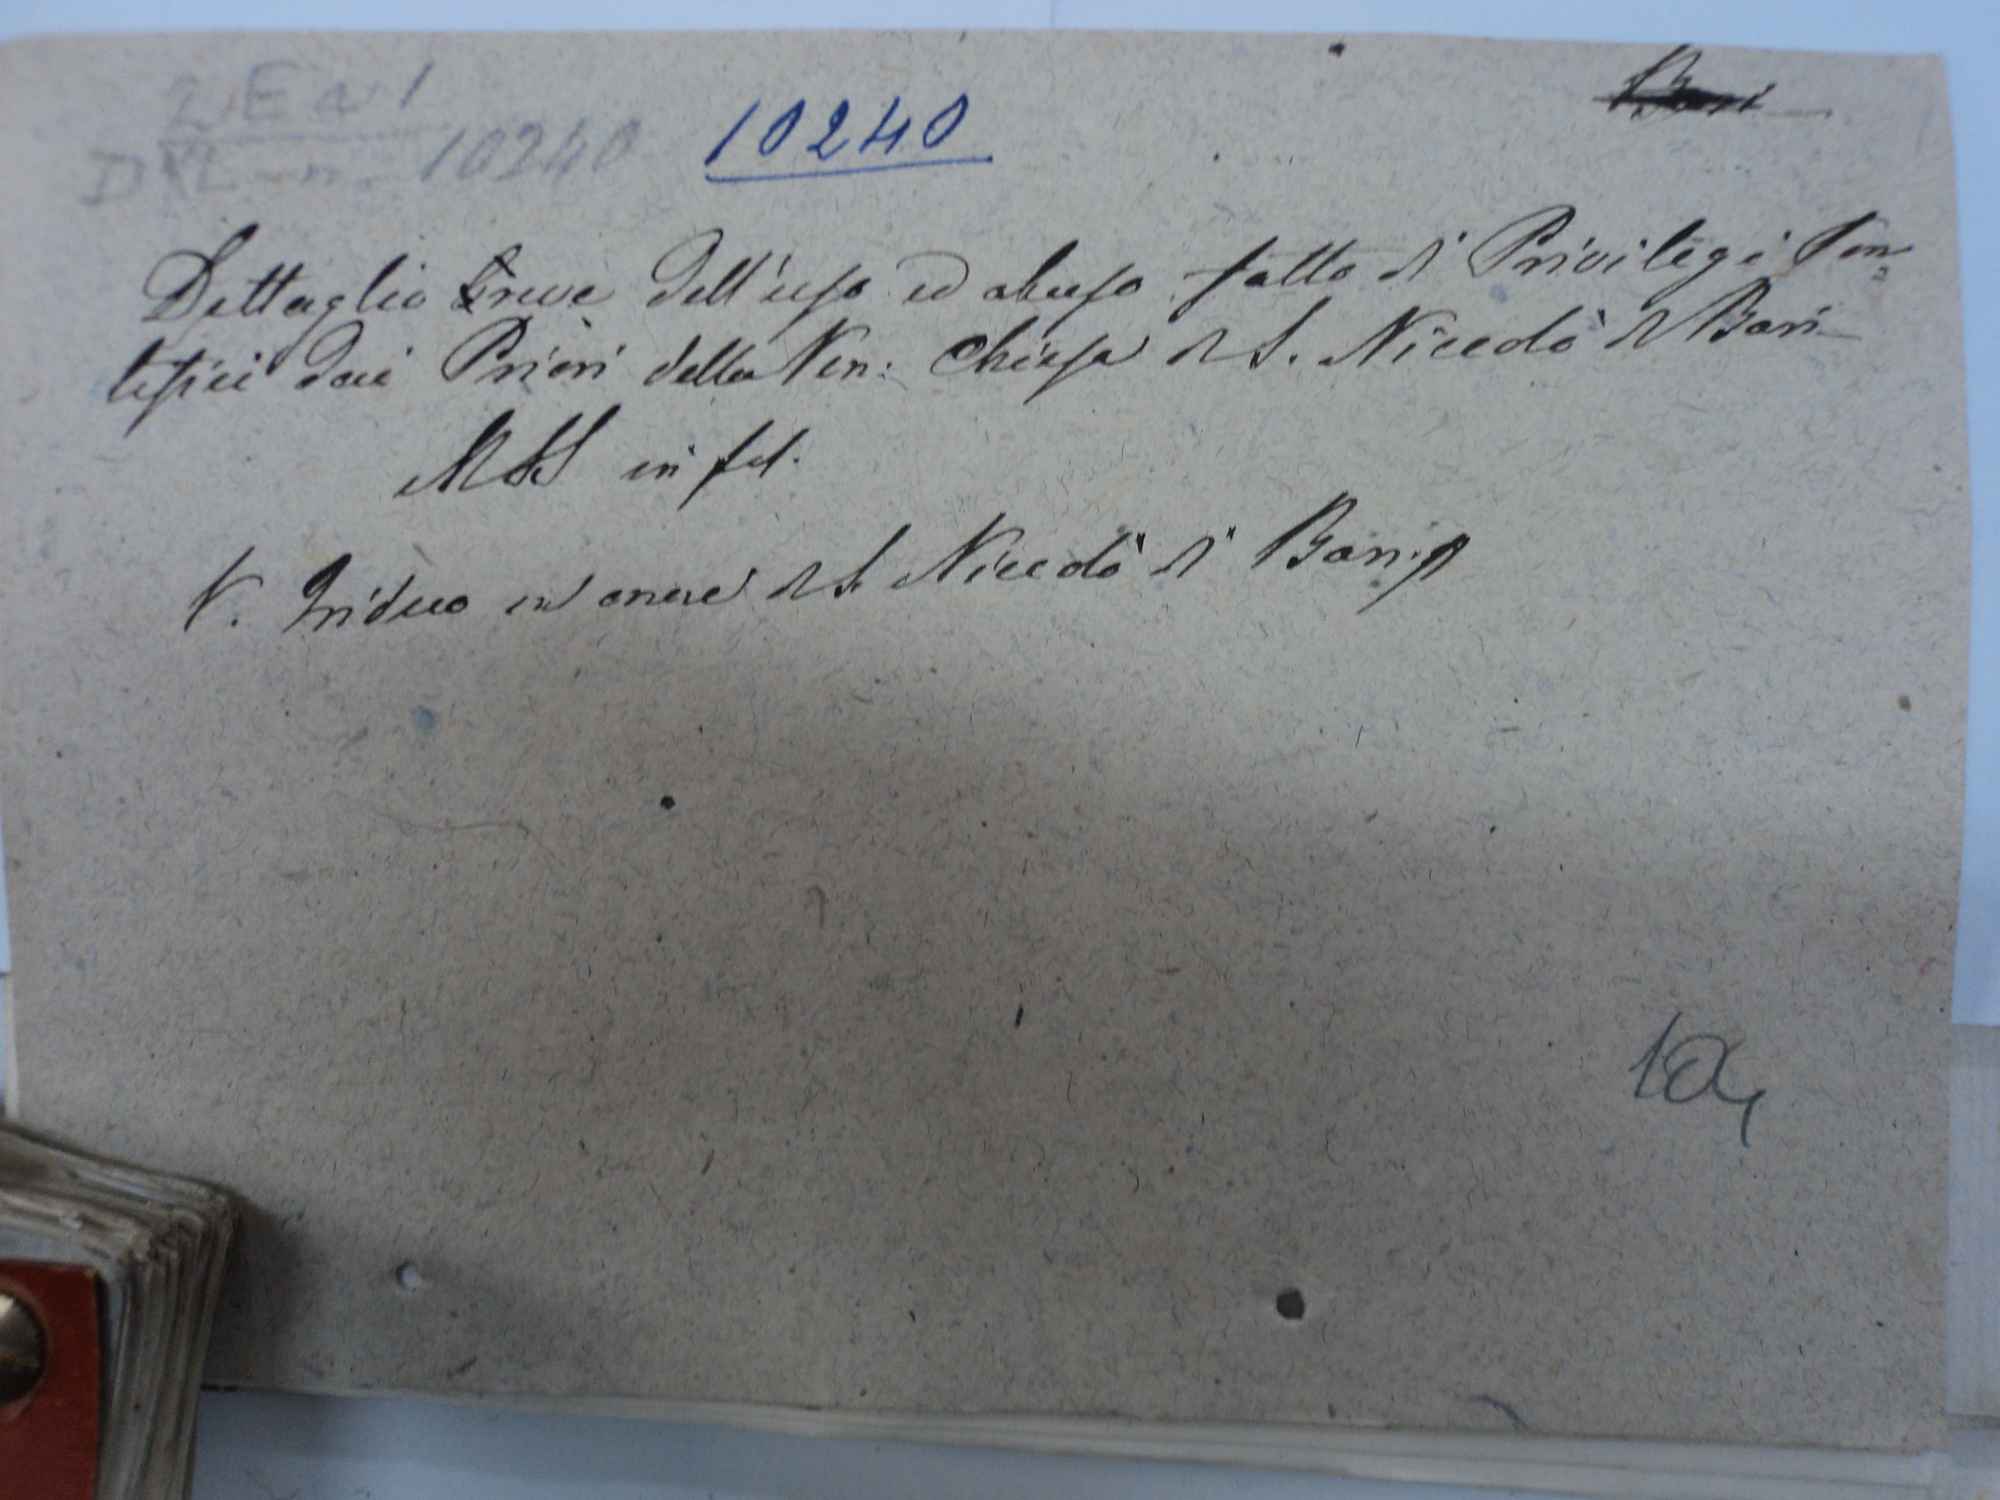 2 E a 1
10240 10240
Dettaglio breve dell'uso ed abuso fatto di Privilegi Pon=
tefici dai Priori della Ven: Chiesa di S. Niccolò di Bari
MSS in fol.
V. Triduo in onore di S. Niccolò di Bari